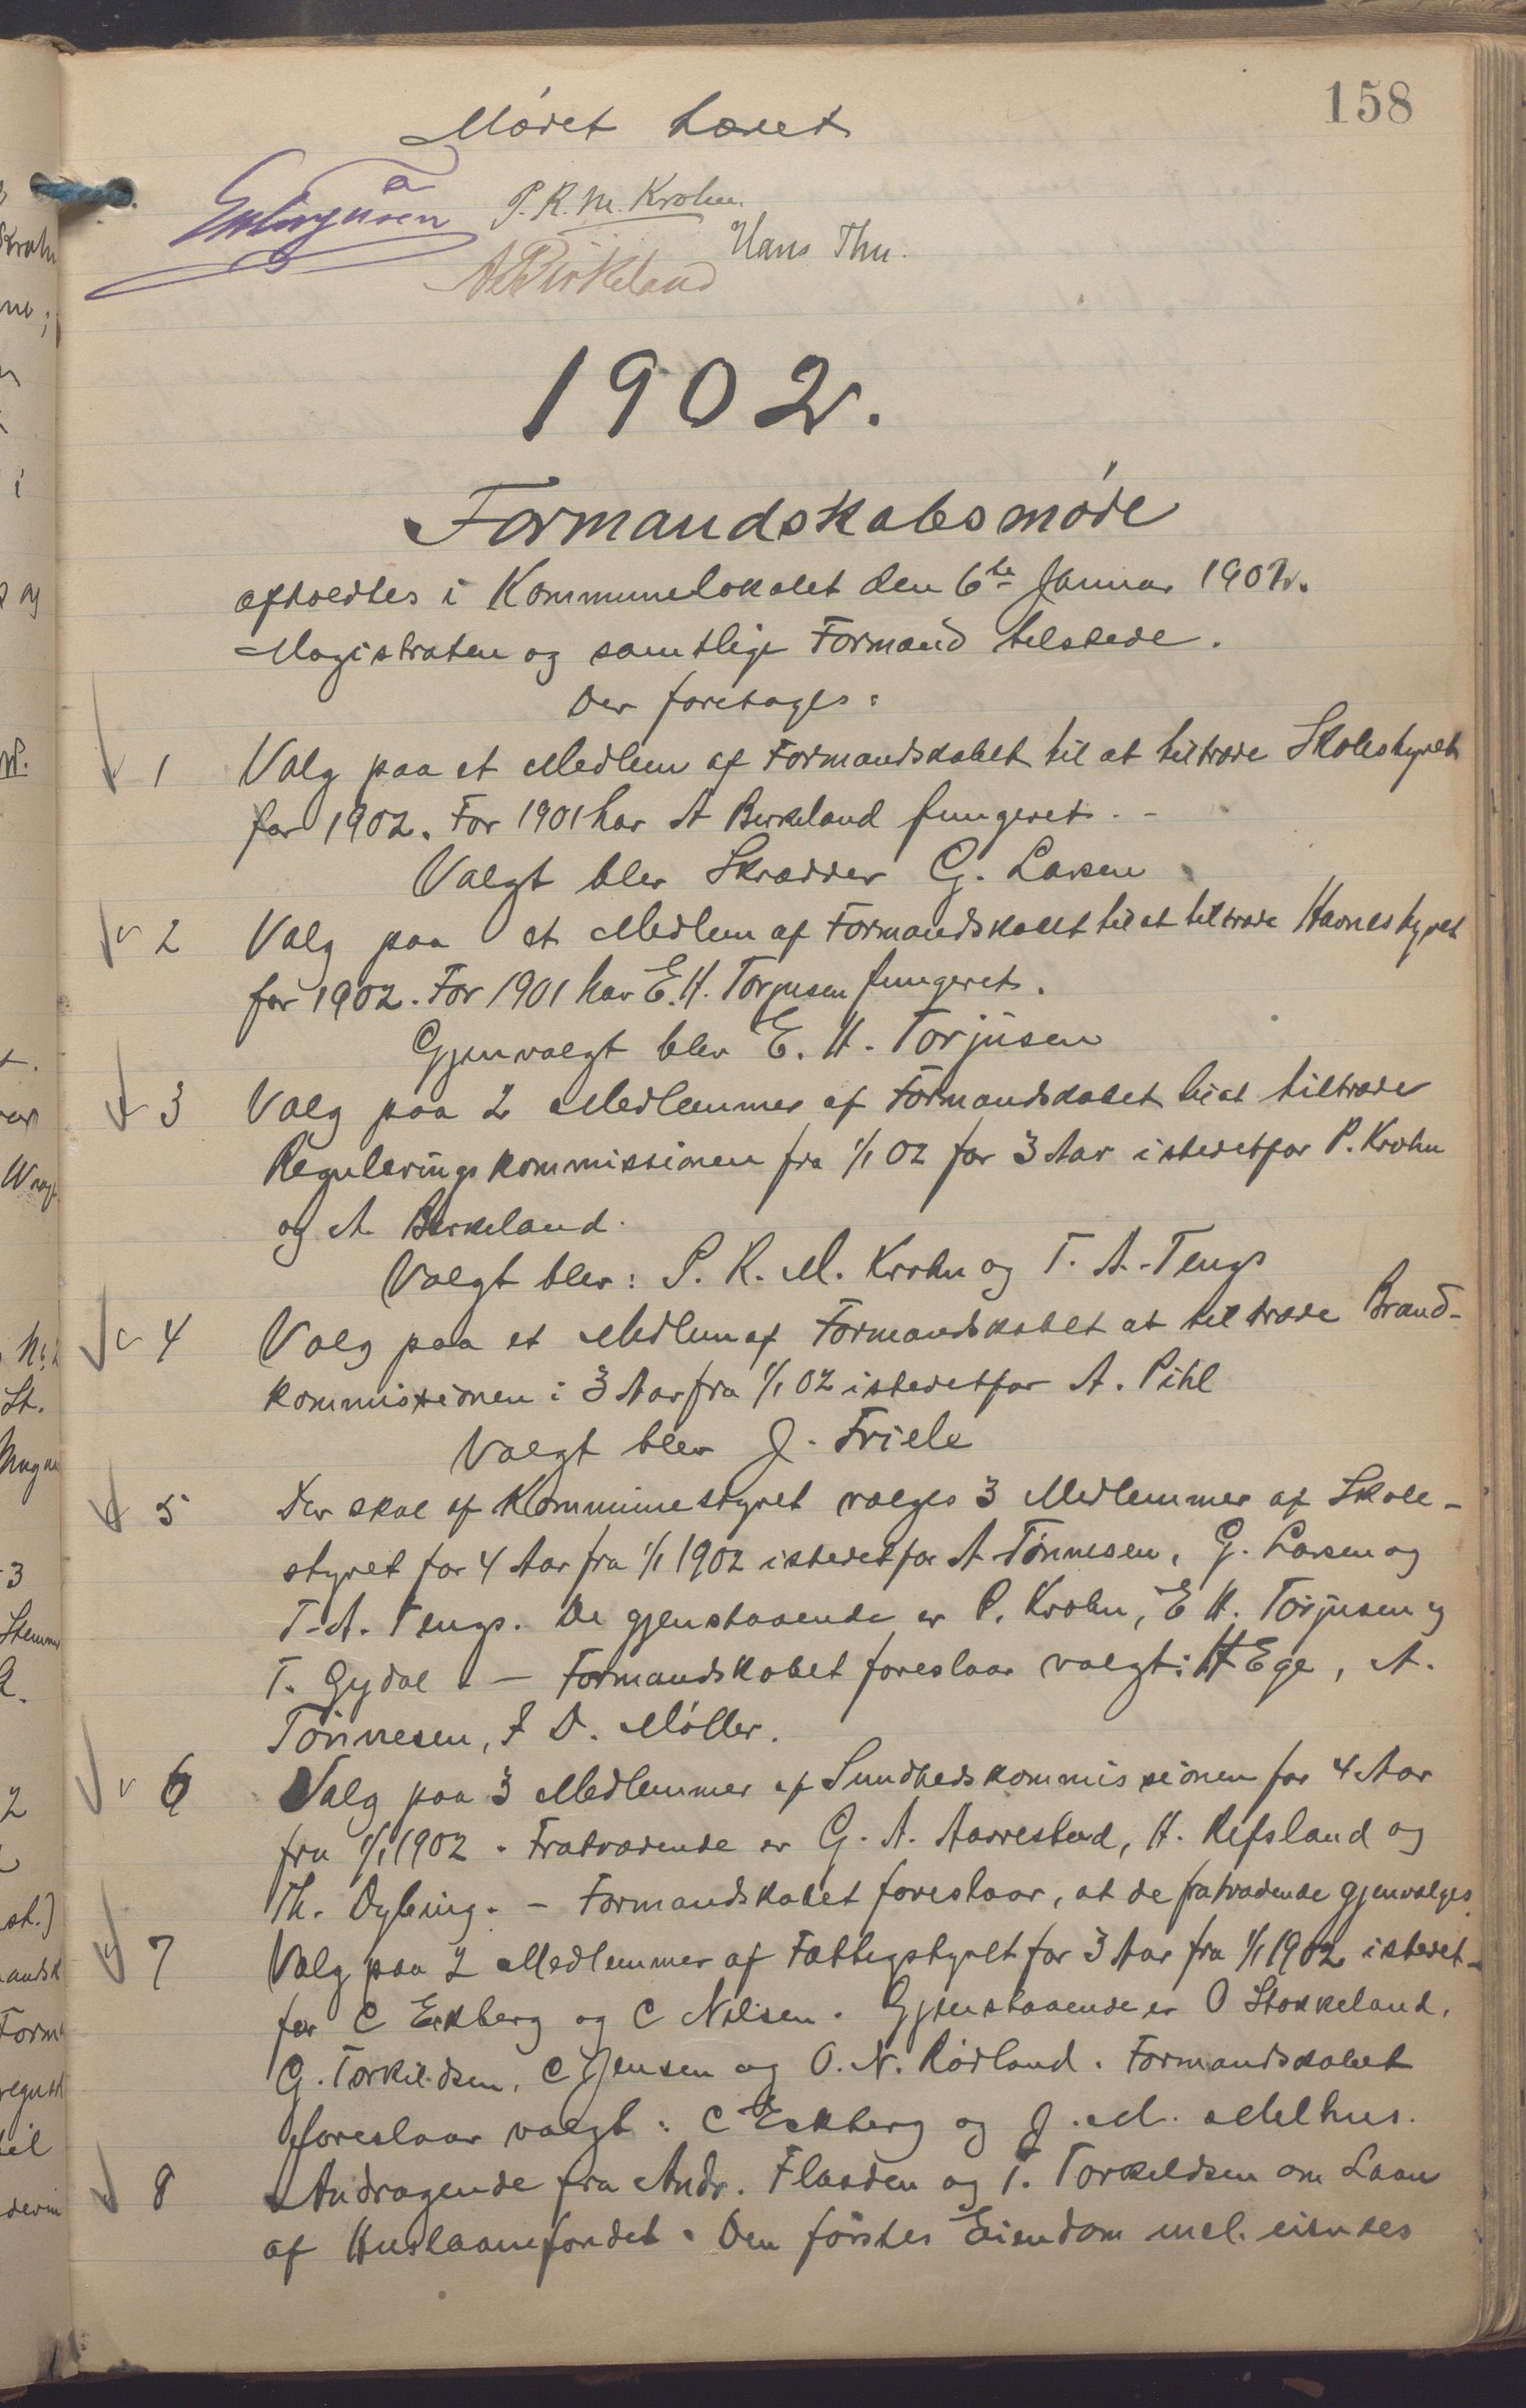 158
Mødet hævet
P. R. M. Krohn
Hans Thu.
A Birkeland
1902.
Formandskabsmøde
afholdtes i Kommunelokalet den 6te Januar 1902.
Magistraten og samtlige Formænd tilstede.
Der foretoges:
1 Valg paa et Medlem af Formandskabet til at tiltræde Skolestyret
for 1902. For 1901 har A Birkeland fungeret. -
Valgt blev Skrædder G. Larsen
2 Valg paa et Medlem af Formandskabet til at tiltræde Havnestyret
for 1902. For 1901 har E. H. Torjusen fungeret.
Gjenvalgt blev E. H. Torjusen
3 Valg paa 2 Medlemmer af Formandskabet til at tiltræde
Reguleringskommissionen fra 1/1 02 for 3 Aar istedetfor P. Krohn
og A. Birkeland.
Valgt blev: P. R. M. Krohn og T. A. Tengs
4 Valg paa et Medlem af Formandskabet at tiltræde Brand-
kommissionen i 3 Aar fra 1/1 02 istedetfor A. Pihl
Valgt blev J. Friele
5 Der skal af Kommunestyret vælges 3 Medlemmer af Skole-
styret for 4 Aar fra 1/1 1902 istedetfor A Tønnesen, G. Larsen og
T. A. Tengs. De gjenstaaende er P. Krohn, E H. Torjusen og
T. Gydal. - Formandskabet foreslaar valgt: H Ege, A.
Tönnesen, D. Møller.
6 Valg paa 3 Medlemmer af Sundhedskommissionen for 4 Aar
fra 1/1 1902. Fratrædende er G. A. Aarrestad, H. Refsland og
Th. Dybing. - Formandskabet foreslaar, at de fratrædende gjenvælges.
7 Valg paa 2 Medlemmer af Fattigstyret for 3 Aar fra 1/1 1902 istedet-
for C Eckberg og C Nilsen. Gjenstaaende er O Stokkeland,
G. Torkildsen, C Jensen og O. N. Rødland. Formandskabet
foreslaar valgt: C Eckberg og J. M. Melhus.
8 Andragende fra Andr. Flaaden og T. Torkeldsen om Laan
af Huslaanefondet. Den førstes Eiendom